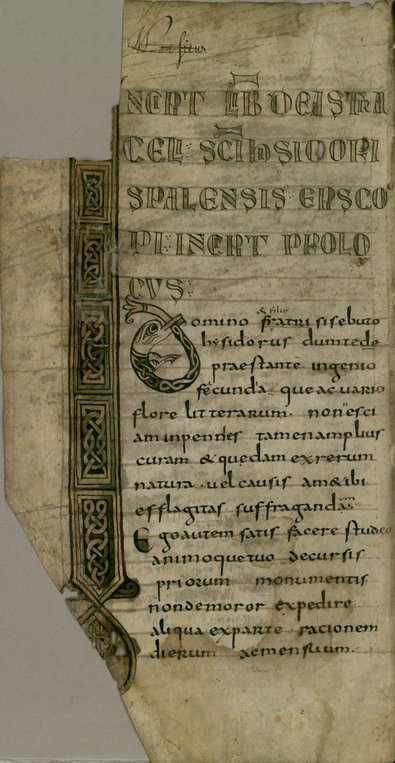 NCPT LIB DE ISTRA
CEL: SCI HSIDORI
SPALENSIS EPSCO
PI: INCPT PROLO
CVS:
& filio
Domino fratri sisebuto
hysidorus dum te de
praestante ingenio
fecunda que ac vario
flore litterarum non esci
am inpendes tamen amplius
curam & quedam ex rerum
natura vel causis a me tibi
efflagitas suffraganda
Ego autem satis facere studio
animo que tuo decursis
priorum monumentis
non demoror expedire
aliqua ex parte racionem
dierum ac mensium.